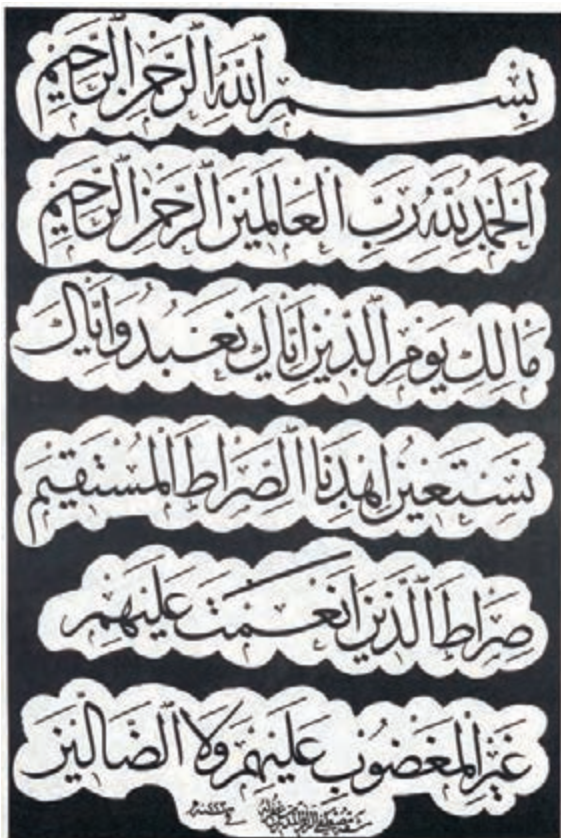 بِسْمِ اللّٰهِ الرَّحْمٰنِ الرَّحِيْمِ
اَلْحَمْدُ لِلّٰهِ رَبِّ الْعَالَمِيْنَ الرَّحْمٰنِ الرَّحِيْمِ
مَالِكِ يَوْمِ الدِّيْنِ اِيَّاكَ نَعْبُدُ وَاِيَّاكَ
نَسْتَعِيْنُ اِهْدِنَا الصِّرَاطَ الْمُسْتَقِيْمَ
صِرَاطَ الَّذِيْنَ اَنْعَمْتَ عَلَيْهِمْ
غَيْرِ الْمَغْضُوْبِ عَلَيْهِمْ وَلَا الضَّالِّيْنَ